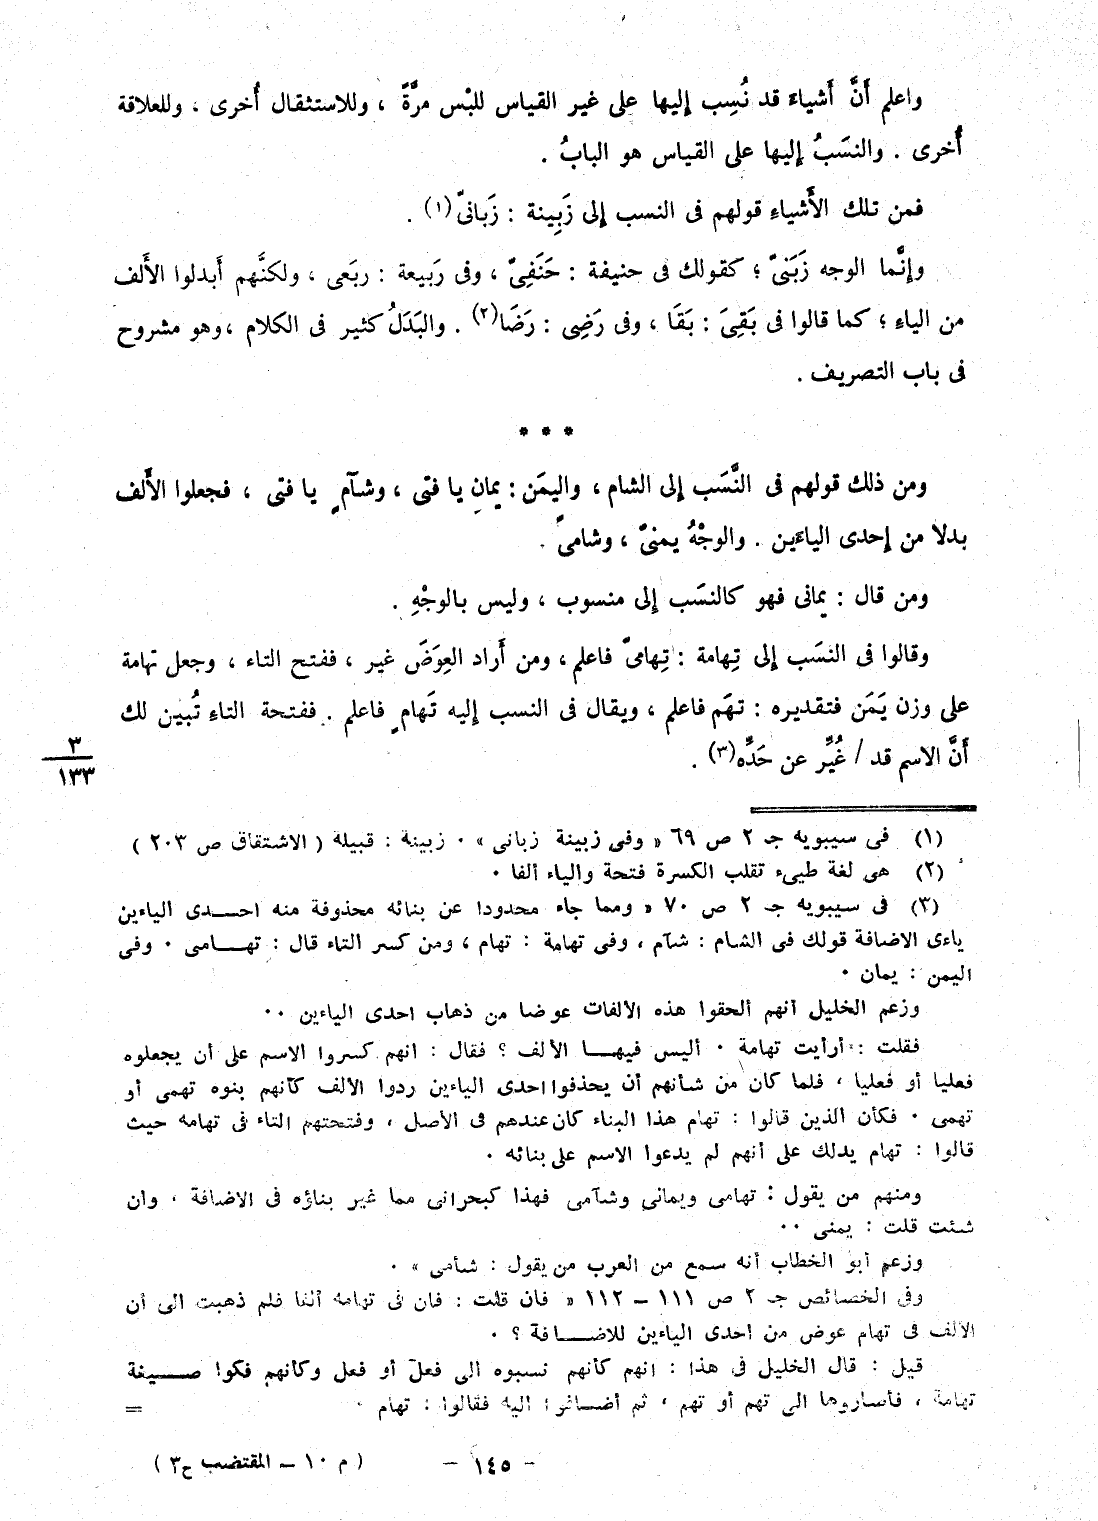 واعلم أَنَّ أَشياءَ قد نُسِب إليها على غير القياس للبْس مرَّةً ، وللاستثقال أُخرى ، وللعلاقة
أُخرى . والنسَبُ إليها على القياس هو البابُ .
فمن تلك الأَشياءِ قولهم فى النسب إلى زَبِينة : زَبانىّ(١) .
وإنَّما الوجه زَبَنىّ ؛ كقولك فى حنيفة : حَنَفِىّ ، وفى رَبيعة : ربَعى ، ولكنَّهم أَبدلوا الأَلف
من الياءِ ؛ كما قالوا فى بَقِىَ : بَقَا ، وفى رَضِى : رَضَا(٢) . والبَدَلُ كثير فى الكلام ، وهو مشروح
فى باب التصريف .
* * *
ومن ذلك قولهم فى النَّسَب إلى الشام ، واليمَن : يمانٍ يا فتى ، وشآمٍ يا فتى ، فجعلوا الأَلف
بدلا من إحدى الياءَين . والوجْهُ يمنىّ ، وشامىّ .
ومن قال : يمانى فهو كالنسَب إلى منسوب ، وليس بالوجْهِ .
وقالوا فى النسَب إلى تِهامة : تِهامىّ فاعلم ، ومن أَراد العِوَضَ غير ، ففتح التاء ، وجعل تهامة
على وزن يَمَن فتقديره : تهَم فاعلم ، ويقال فى النسب إليه تَهامٍ فاعلم . ففتحة التاءِ تُبين لك
أَنَّ الاسم قد / غُيِّر عن حَدِّه(٣) .
٣
١٣٣
(١) فى سيبويه جـ ٢ ص ٦٩ « وفى زبينة زبانى » . زبينة : قبيلة ( الاشتقاق ص ٢٠٣ )
(٢) هى لغة طيىء تقلب الكسرة فتحة والياء ألفا .
(٣) فى سيبويه جـ ٢ ص ٧٠ « ومما جاء محدودا عن بنائه محذوفة منه احدى الياءين
ياءى الاضافة قولك فى الشام : شآم ، وفى تهامة : تهام ، ومن كسر التاء قال : تهامى . وفى
اليمن : يمان .
وزعم الخليل أنهم ألحقوا هذه الالفات عوضا من ذهاب احدى الياءين ..
فقلت : أرأيت تهامة . أليس فيها الألف ؟ فقال : انهم كسروا الاسم على أن يجعلوه
فعليا أو فعليا ، فلما كان من شأنهم أن يحذفوا احدى الياءين ردوا الألف كأنهم بنوه تهمى أو
تهمى . فكأن الذين قالوا : تهام هذا البناء كان عندهم فى الأصل ، وفتحتهم التاء فى تهامه حيث
قالوا : تهام يدلك على أنهم لم يدعوا الاسم على بنائه .
ومنهم من يقول : تهامى ويمانى وشآمى فهذا كبحرانى مما غير بناؤه فى الاضافة ، وان
شئت قلت : يمنى ..
وزعم أبو الخطاب أنه سمع من العرب من يقول : شأمى » .
وفى الخصائص جـ ٢ ص ١١١ – ١١٢ « فان قلت : فان فى تهامه ألفا فلم ذهبت الى أن
الألف فى تهام عوض من احدى الياءين للاضافة ؟ .
قيل : قال الخليل فى هذا : انهم كأنهم نسبوه الى فعل أو فعل وكأنهم فكوا صيغة
تهامة ، فأصاروها الى تهم أو تهم ، ثم أضافوا اليه فقالوا : تهام .
=
– ١٤٥ –
( م ١٠ – المقتضب ح٣ )